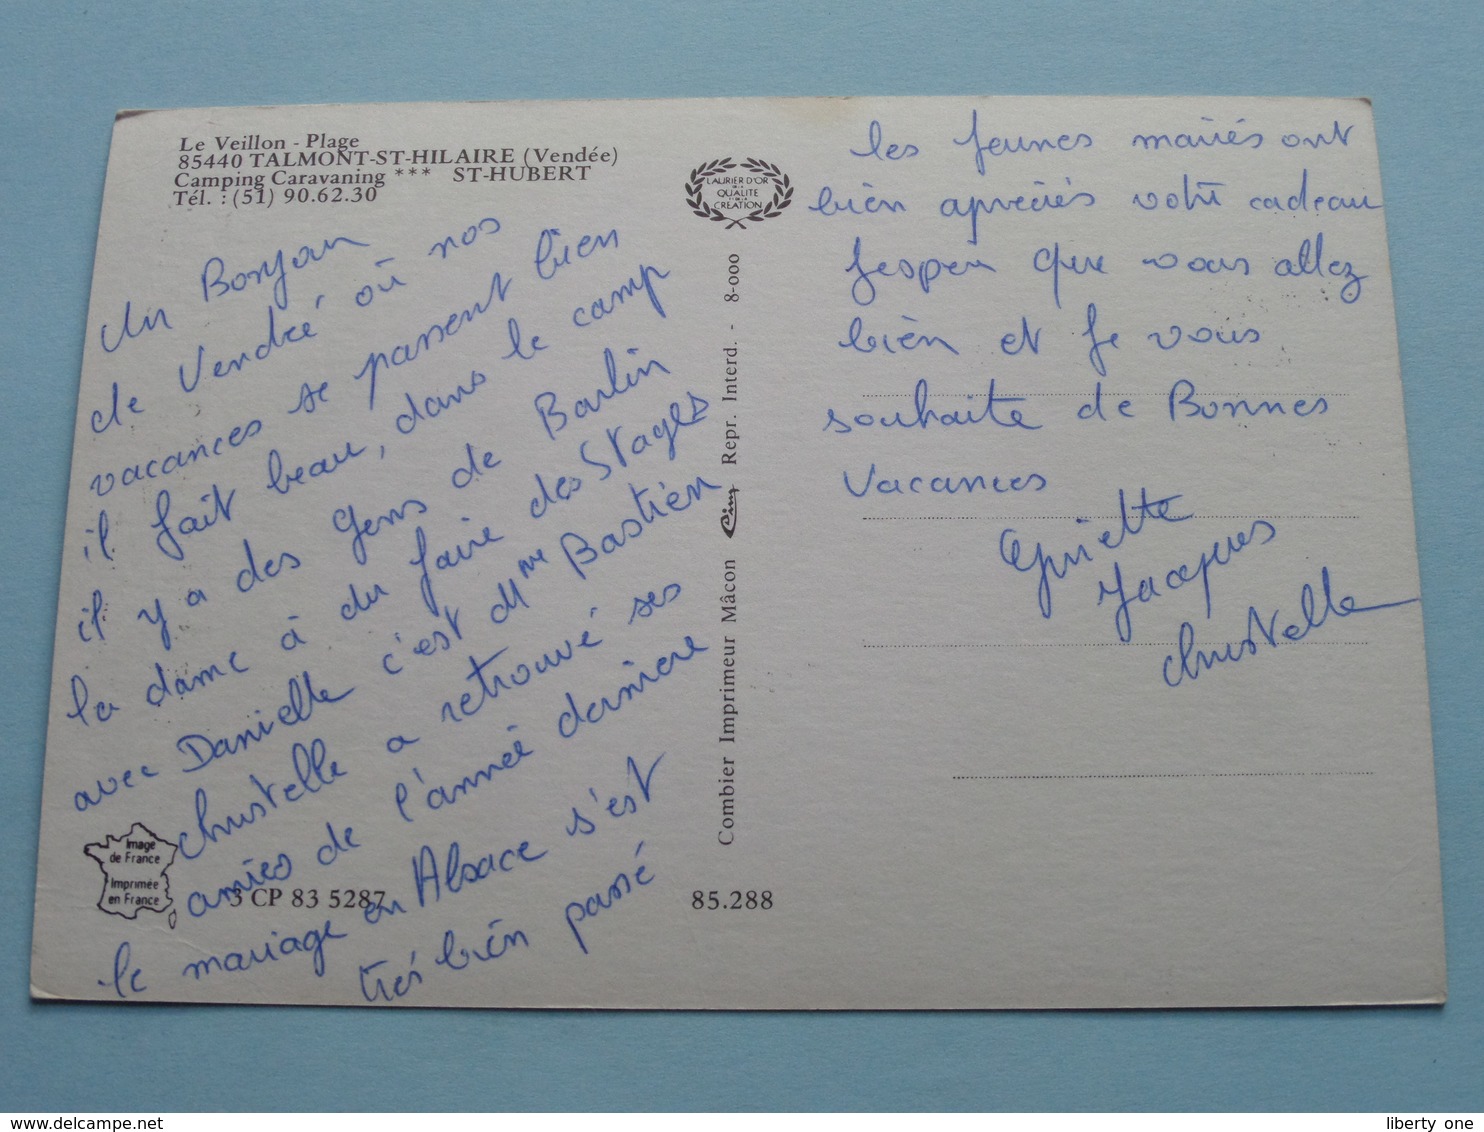 Le Veillon - Plage
85440 TALMONT-ST-HILAIRE (Vendée)
Camping Caravaning *** ST-HUBERT
Tél. : (51) 90.62.30
LAURIER D'OR
DE LA
QUALITE
ET DE LA
CREATION
Un Bonjour
de Vendée où nos
vacances se passent bien
il fait beau, dans le camp
il y a des gens de Barlin
la dame à du faire des Stages
avec Danielle c'est Mme Bastién
Christelle a retrouvé ses
amies de l'année derniere
le mariage en Alsace s'est
trés bién passé
les jeunes mariés ont
bién apréciés votre cadeau
J'espere que vous allez
bién et je vous
souhaite de Bonnes
Vacances
Ginette
Jacques
Christelle
Combier Imprimeur Mâcon Cim Repr. Interd. - 8-000
Image
de France
Imprimée
en France
3 CP 83 5287
85.288
www.delcampe.net
liberty one